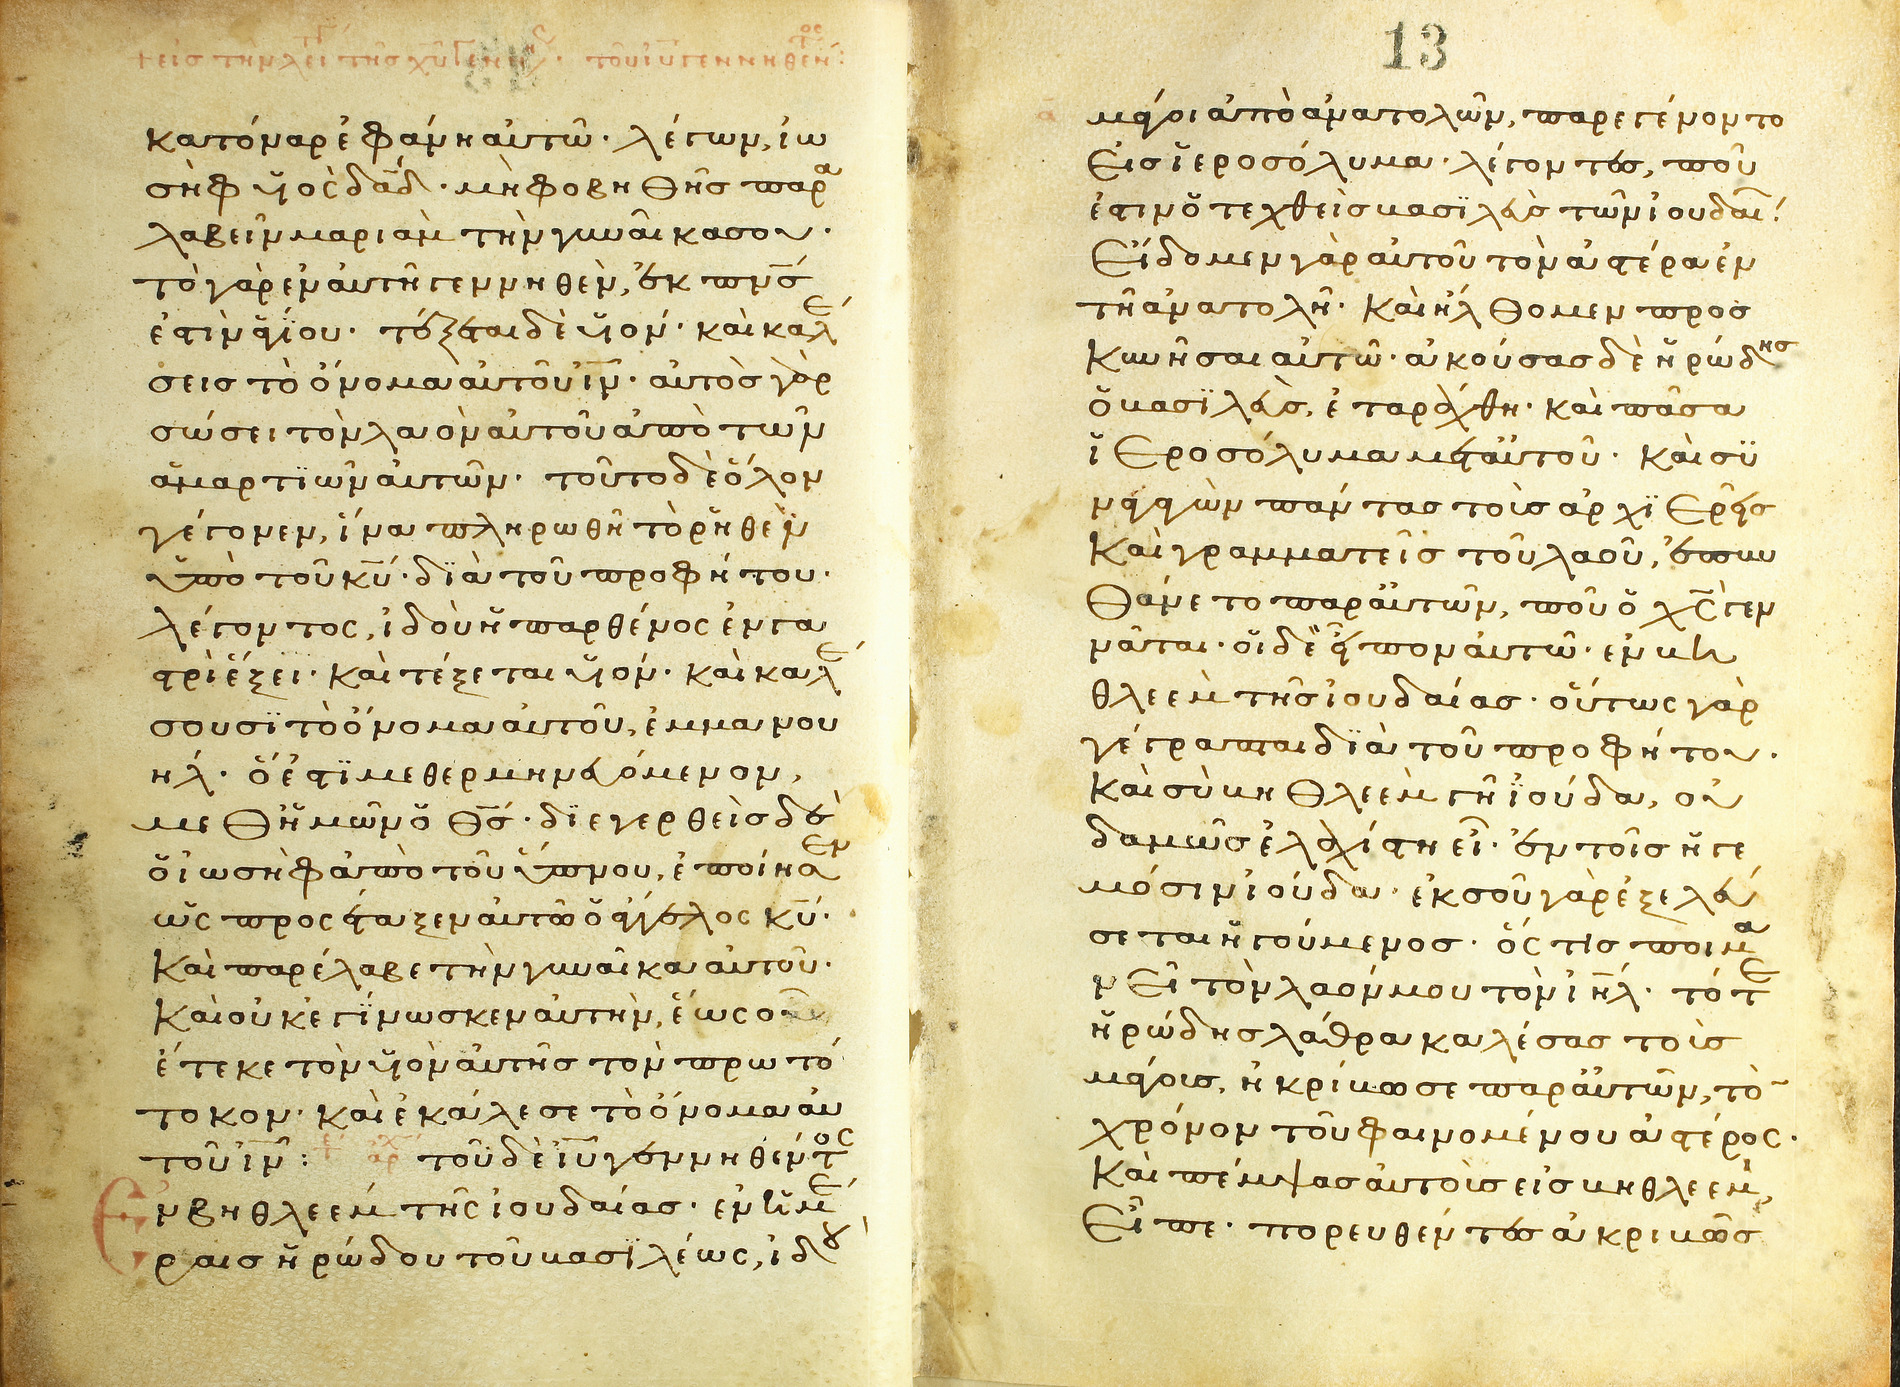 κατόναρ ἐφάνη αὐτῶ· λέγων, ἰω
σὴφ ὑιὸς δᾱδ· μὴ φοβηθῆς παρα
λαβεῖν μαριὰμ τὴν γυναῖκα σου·
τὸ γὰρ ἐν αὐτῆ γεννηθὲν, ἐκ πν̅ς
ἐστὶν ἁγίου· τέξεται δὲ ὑιόν· καὶ καλέ
σεις τὸ ὄνομα αὐτοῦ ἰν̅· αὐτὸς γὰρ
σώσει τὸν λαὸν αὐτοῦ ἀπὸ τῶν
ἁμαρτϊῶν αὐτῶν· τοῦτο δὲ ὅλον
γέγονεν, ἵνα πληρωθῆ τὸ ῥηθὲν
ὑπὸ τοῦ κ̅υ· δϊὰ τοῦ προφήτου·
λέγοντος, ἰδοὺ ἡ παρθένος ἐν γα
στρὶ ἕξει· καὶ τέξεται ὑιόν· καὶ καλέ
σουσϊ τὸ ὄνομα αὐτοῦ, ἐμμανου
ηλ· ὅ ἐστϊ μεθερμηνευόμενον,
μεθ ἡμῶν ὁ θ̅ς· δϊεγερθεὶς δὲ
ὁ ἰωσὴφ ἀπὸ τοῦ ὕπνου, ἐποίησεν
ὡς προσέταξεν αὐτῶ ὁ ἄγγελος κ̅υ·
καὶ παρέλαβε τὴν γυναῖκα αὐτοῦ·
καὶ οὐκ ἐγίνωσκεν αὐτὴν, ἕως οὗ
ἔτεκε τὸν ὑιὸν αὐτῆς τὸν πρωτό
τοκον· καὶ ἐκάλεσε τὸ ὄνομα αὐ
τοῦ ἰν̅: τοῦ δὲ ἰ̅υ γεννηθέντος
Ἐν βηθλεὲμ τῆς ἰουδαίας· ἐν ἡμέ
ραις ἡρώδου τοῦ βασϊλέως, ἰδοὺ
13
μάγοι ἀπὸ ἀνατολῶν, παρεγένοντο
εἰς ἱεροσόλυμα· λέγοντες, ποῦ
ἐστιν ὁ τεχθεὶς βασϊλεὺς τῶν ἰουδαί
εἴδομεν γὰρ αὐτοῦ τὸν ἀστέρα ἐν
τῆ ἀνατολῆ· καὶ ἤλθομεν προσ
κυνῆσαι αὐτῶ· ἀκούσας δὲ ἡρώδης
ὁ βασϊλεὺς, ἐταράχθη· καὶ πᾶσα
ἱεροσόλυμα μετ αὐτοῦ· καὶ συ
ναγαγὼν πάντας τοὺς ἀρχϊερεῖς
καὶ γραμματεῖς τοῦ λαοῦ, ἐπυν
θάνετο παρ αὐτῶν, ποῦ ὁ χ̅ς γεν
νᾶται· οἱ δὲ εἶπον αὐτῶ· ἐν βη
θλεὲμ τῆς ἰουδαίας· οὕτως γὰρ
γέγραπται δϊὰ τοῦ προφήτου·
καὶ σὺ βηθλεὲμ γῆ ἰούδα, οὐ
δαμῶς ἐλαχίστη εἶ· ἐν τοῖς ἡγε
μόσιν ἰούδα· ἐκ σοῦ γὰρ ἐξελεύ
σεται ἡγούμενος· ὅς τις ποιμα
νεῖ τὸν λαόν μου τὸν ἰη̅λ· τότε
ἡρώδης λάθρα καλέσας τοὺς
μάγους, ἠκρίβωσε παρ αὐτῶν, τὸν
χρόνον τοῦ φαινομένου ἀστέρος·
καὶ πέμψας αὐτοὺς εἰς βηθλεὲμ,
εἶπε· πορευθέντες ἀκριβῶς